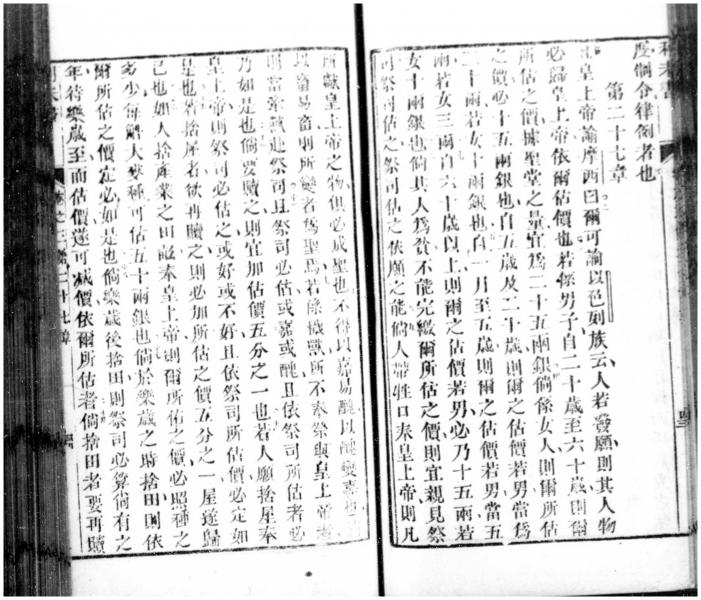 度個令律例者也
第二十七章
皇上帝諭摩西曰爾可諭以色列族云人若發願則其人物
必歸皇上帝依爾估價也若係男子自二十歲至六十歲則爾
所估之價據聖堂之量宜爲二十五兩銀倘係女人則爾所估
之價必十五兩銀也自五歲及二十歲則爾之估價若男當爲
二十兩若女十兩銀也自一月至五歲則爾之估價若男當五
兩若女三兩自六十歲以上則爾之估價若男必乃十五兩若
女十兩銀也倘其人爲貧不能完繳爾所估之價則宜親見祭
司祭司估之依願之能倘人帶牲口奉皇上帝則凡
所獻皇上帝之物俱必成聖也不得以嘉易醜以醜變嘉也
以畜易畜則所變者爲聖焉若係穢獸所不奉祭與皇上帝者
則當牽獸赴祭司且祭司必估或嘉或醜且依祭司所估者必
乃如是也倘要贖之則宜加估價五分之一也若人願捨屋奉
皇上帝則祭司必估之或好或不好且依祭司所估價必定如
是也若捨屋者欲再贖之則必加所估之價五分之一屋遂歸
己也如人捨產業之田畝奉皇上帝則爾所估之價必照種之
多少每觔大麥種可估五十兩銀也倘於樂歲之時捨田則依
爾所估之價定必如是也倘樂歲後捨田則祭司必算尚有之
年待樂歲至而估價遂可減價依爾所估者倘捨田者要再贖
利未書
卷之三第二十七章